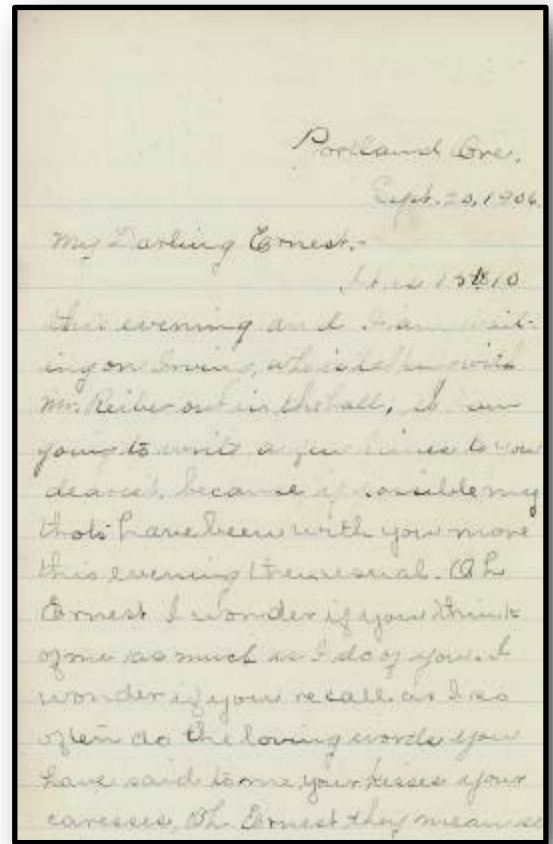 Portland Ore.
Sept. 20, 1906.
My Darling Ernest,-
It is 10
this evening and I am wait-
ing on Irving, who is talking with
Mr. Reiber out in the hall, so I am
going to write a few lines to you
dearest, because if possible my
thots have been with you more
this evening then usual. Oh
Ernest I wonder if you think
of me as much as I do of you. I
wonder if you recall as I so
often do the loving words you
have said to me, your kisses your
caresses, Oh Ernest they mean so